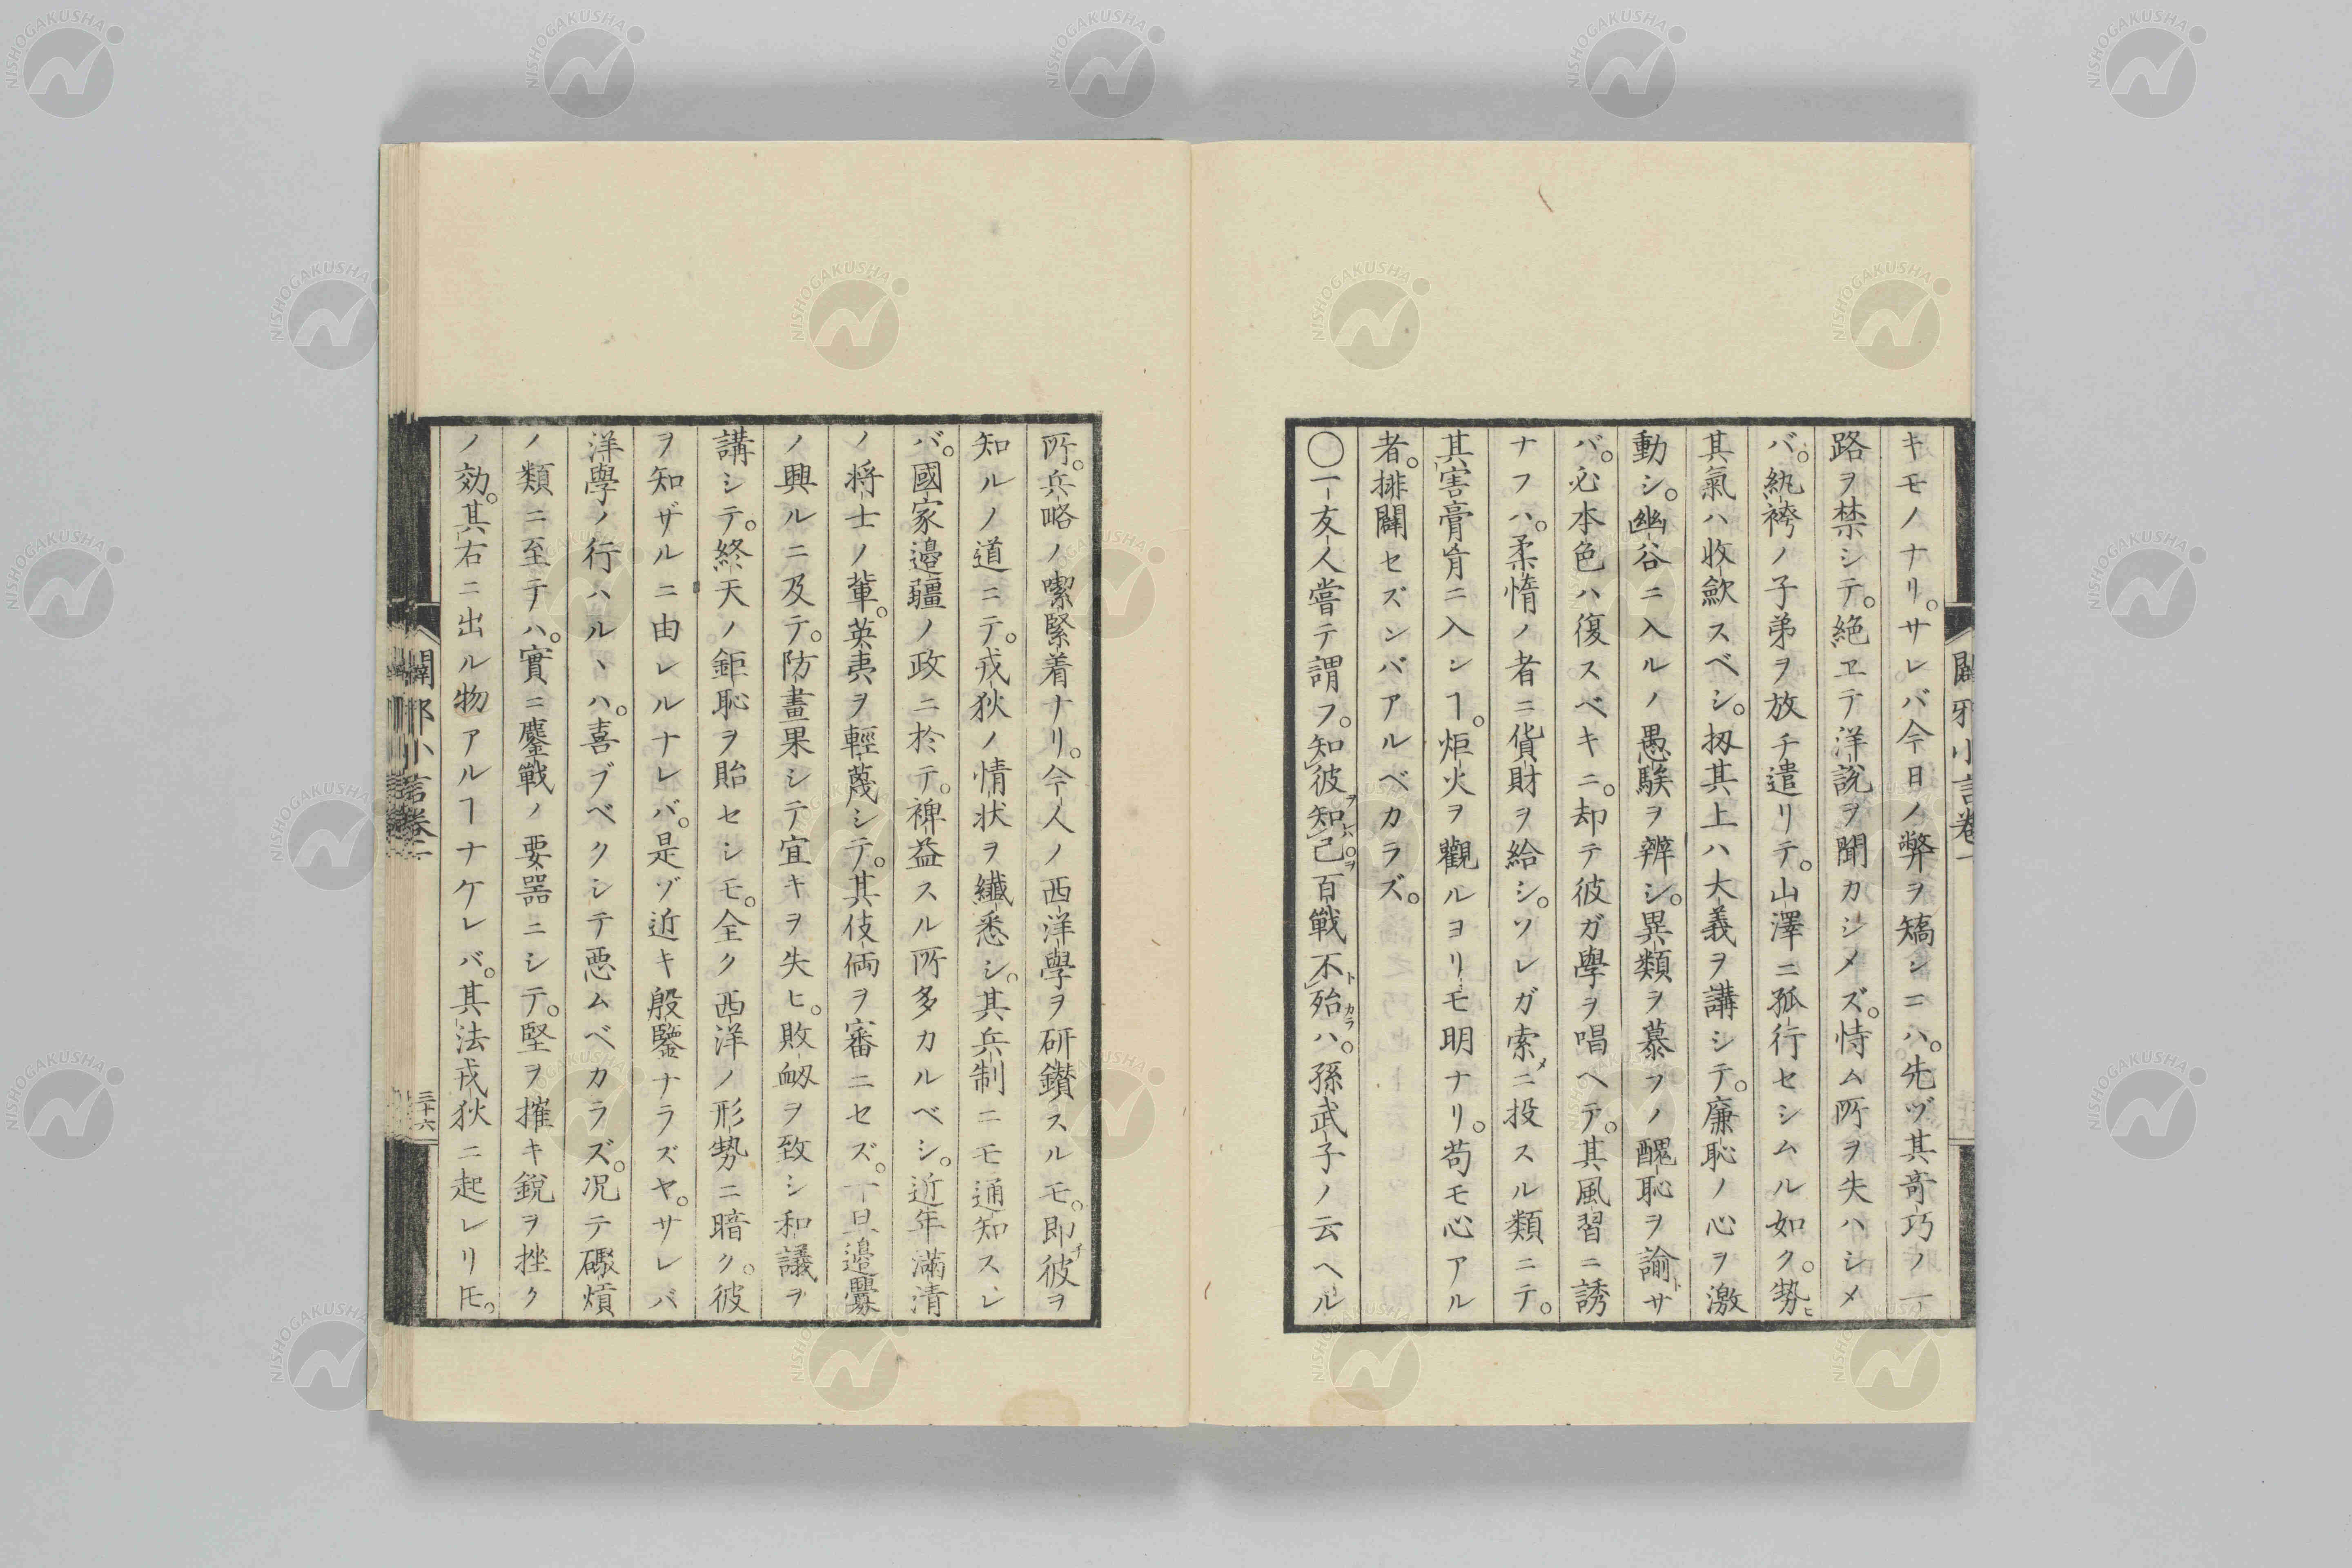 キモノナリ。サレバ今日ノ弊ヲ矯ンニハ。先ヅ其竒巧ノ一
路ヲ禁シテ。絶エテ洋說ヲ聞カシメズ。恃ム所ヲ失ハシメ
バ。紈袴ノ子弟ヲ放チ遣リテ。山澤ニ孤行セシムル如ク。勢ヒ
其氣ハ收歛スベシ。扨其上ハ大義ヲ講シテ。廉恥ノ心ヲ激
動シ。幽谷ニ入ルノ愚騃ヲ辨シ。異類ヲ慕フノ醜恥ヲ諭トサ
バ。必本色ハ復スベキニ。却テ彼ガ學ヲ唱ヘテ。其風習ニ誘
ナフハ。柔惰ノ者ニ貨財ヲ給シ。ソレガ索メニ投スル類ニテ。
其害膏肓ニ入ンヿ。炬火ヲ觀ルヨリモ明ナリ。苟モ心アル
者。排闢セズンバアルベカラズ。
〇一友人嘗テ謂フ。知彼ヲ知ハ己ヲ百戰不ト殆カラハ。孫武子ノ云ヘル
所。兵略ノ喫緊着ナリ。今人ノ西洋學ヲ研鑚スルモ。即チ彼ヲ
知ルノ道ニテ。戎狄ノ情状ヲ纎悉シ。其兵制ニモ通知スレ
バ。國家邉疆ノ政ニ於テ。裨益スル所多カルベシ。近年滿清
ノ将士ノ輩。英夷ヲ輕蔑シテ。其伎倆ヲ審ニセズ。一旦邉釁
ノ興ルニ及テ。防畫果シテ宜キヲ失ヒ。敗衂ヲ致シ和議ヲ
講シテ。終天ノ鉅恥ヲ貽セシモ。全ク西洋ノ形勢ニ暗ク。彼
ヲ知ザルニ由レルナレバ。是ゾ近キ殷鑒ナラズヤ。サレバ
洋學ノ行ハルヽハ。喜ブベクシテ悪ムベカラズ。况テ礮熕
ノ類ニ至テハ。實ニ鏖戰ノ要噐ニシテ。堅ヲ摧キ銳ヲ挫ク
ノ効。其右ニ出ル物アルヿナケレバ。其法戎狄ニ起レリ𪜈。
闢邪小言卷二
三十六